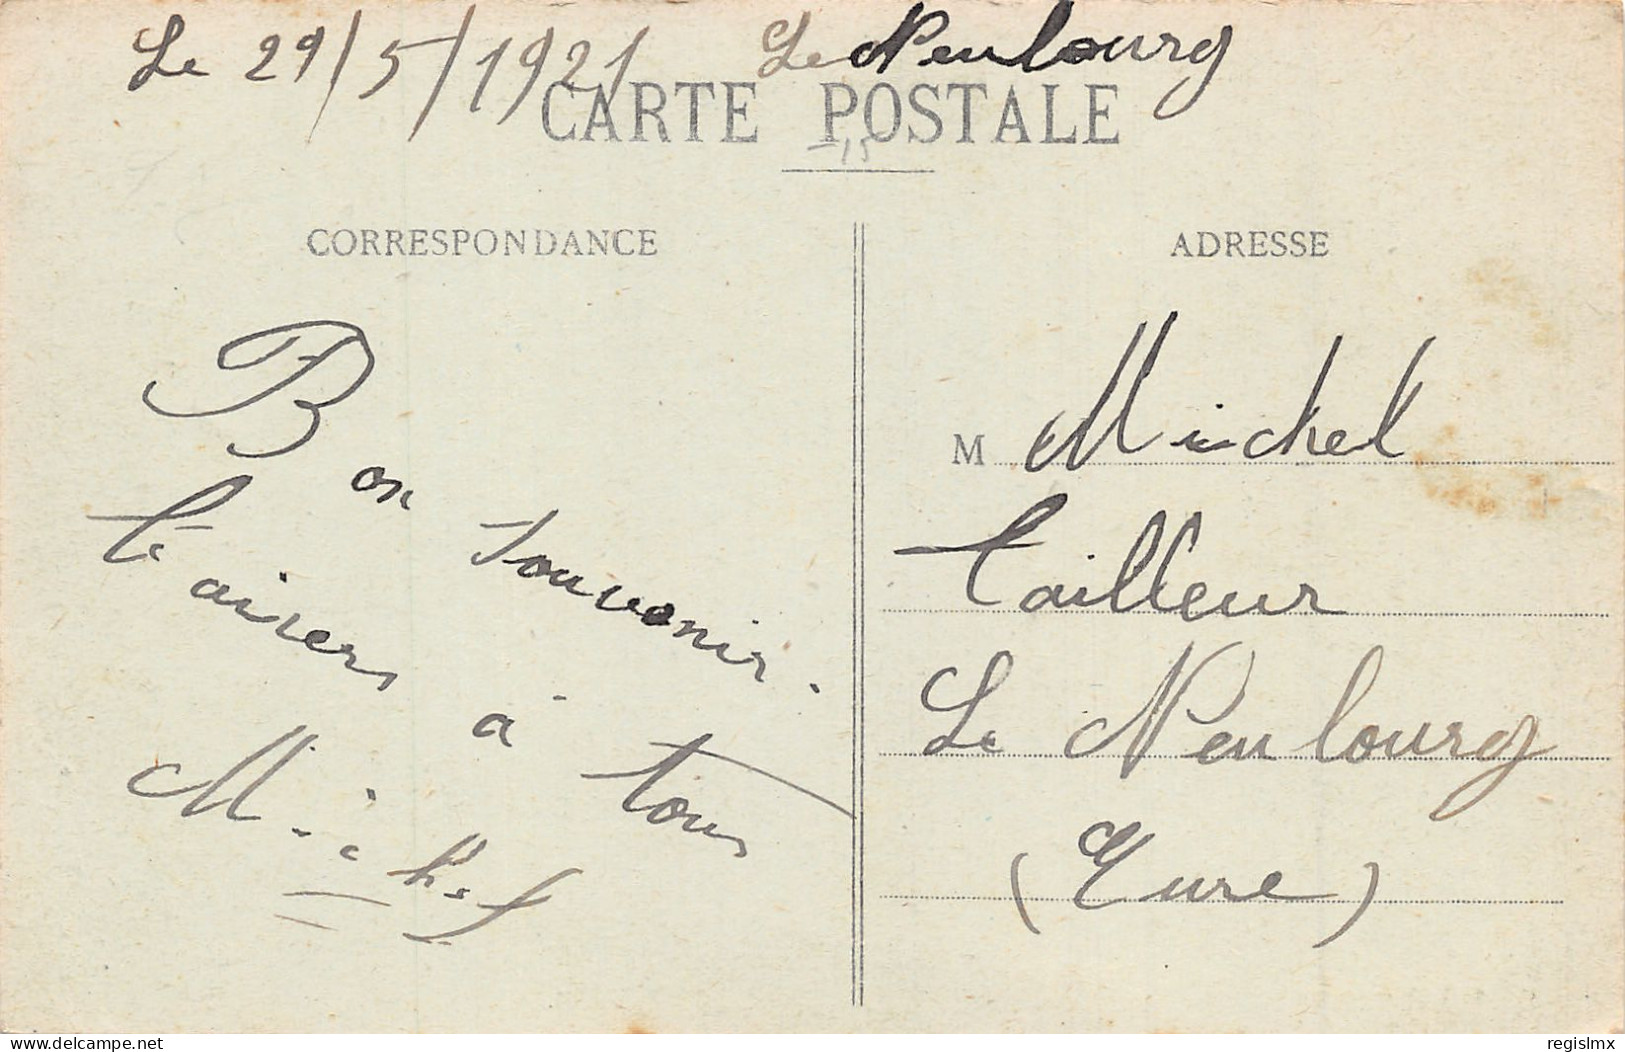 Le 29/5/1921 Le Neubourg
CARTE POSTALE
-15
CORRESPONDANCE
Bon souvenir.
à tous
Michel
ADRESSE
M Michel
Tailleur
Le Neubourg
(Eure)
delcampe.net
regislmx